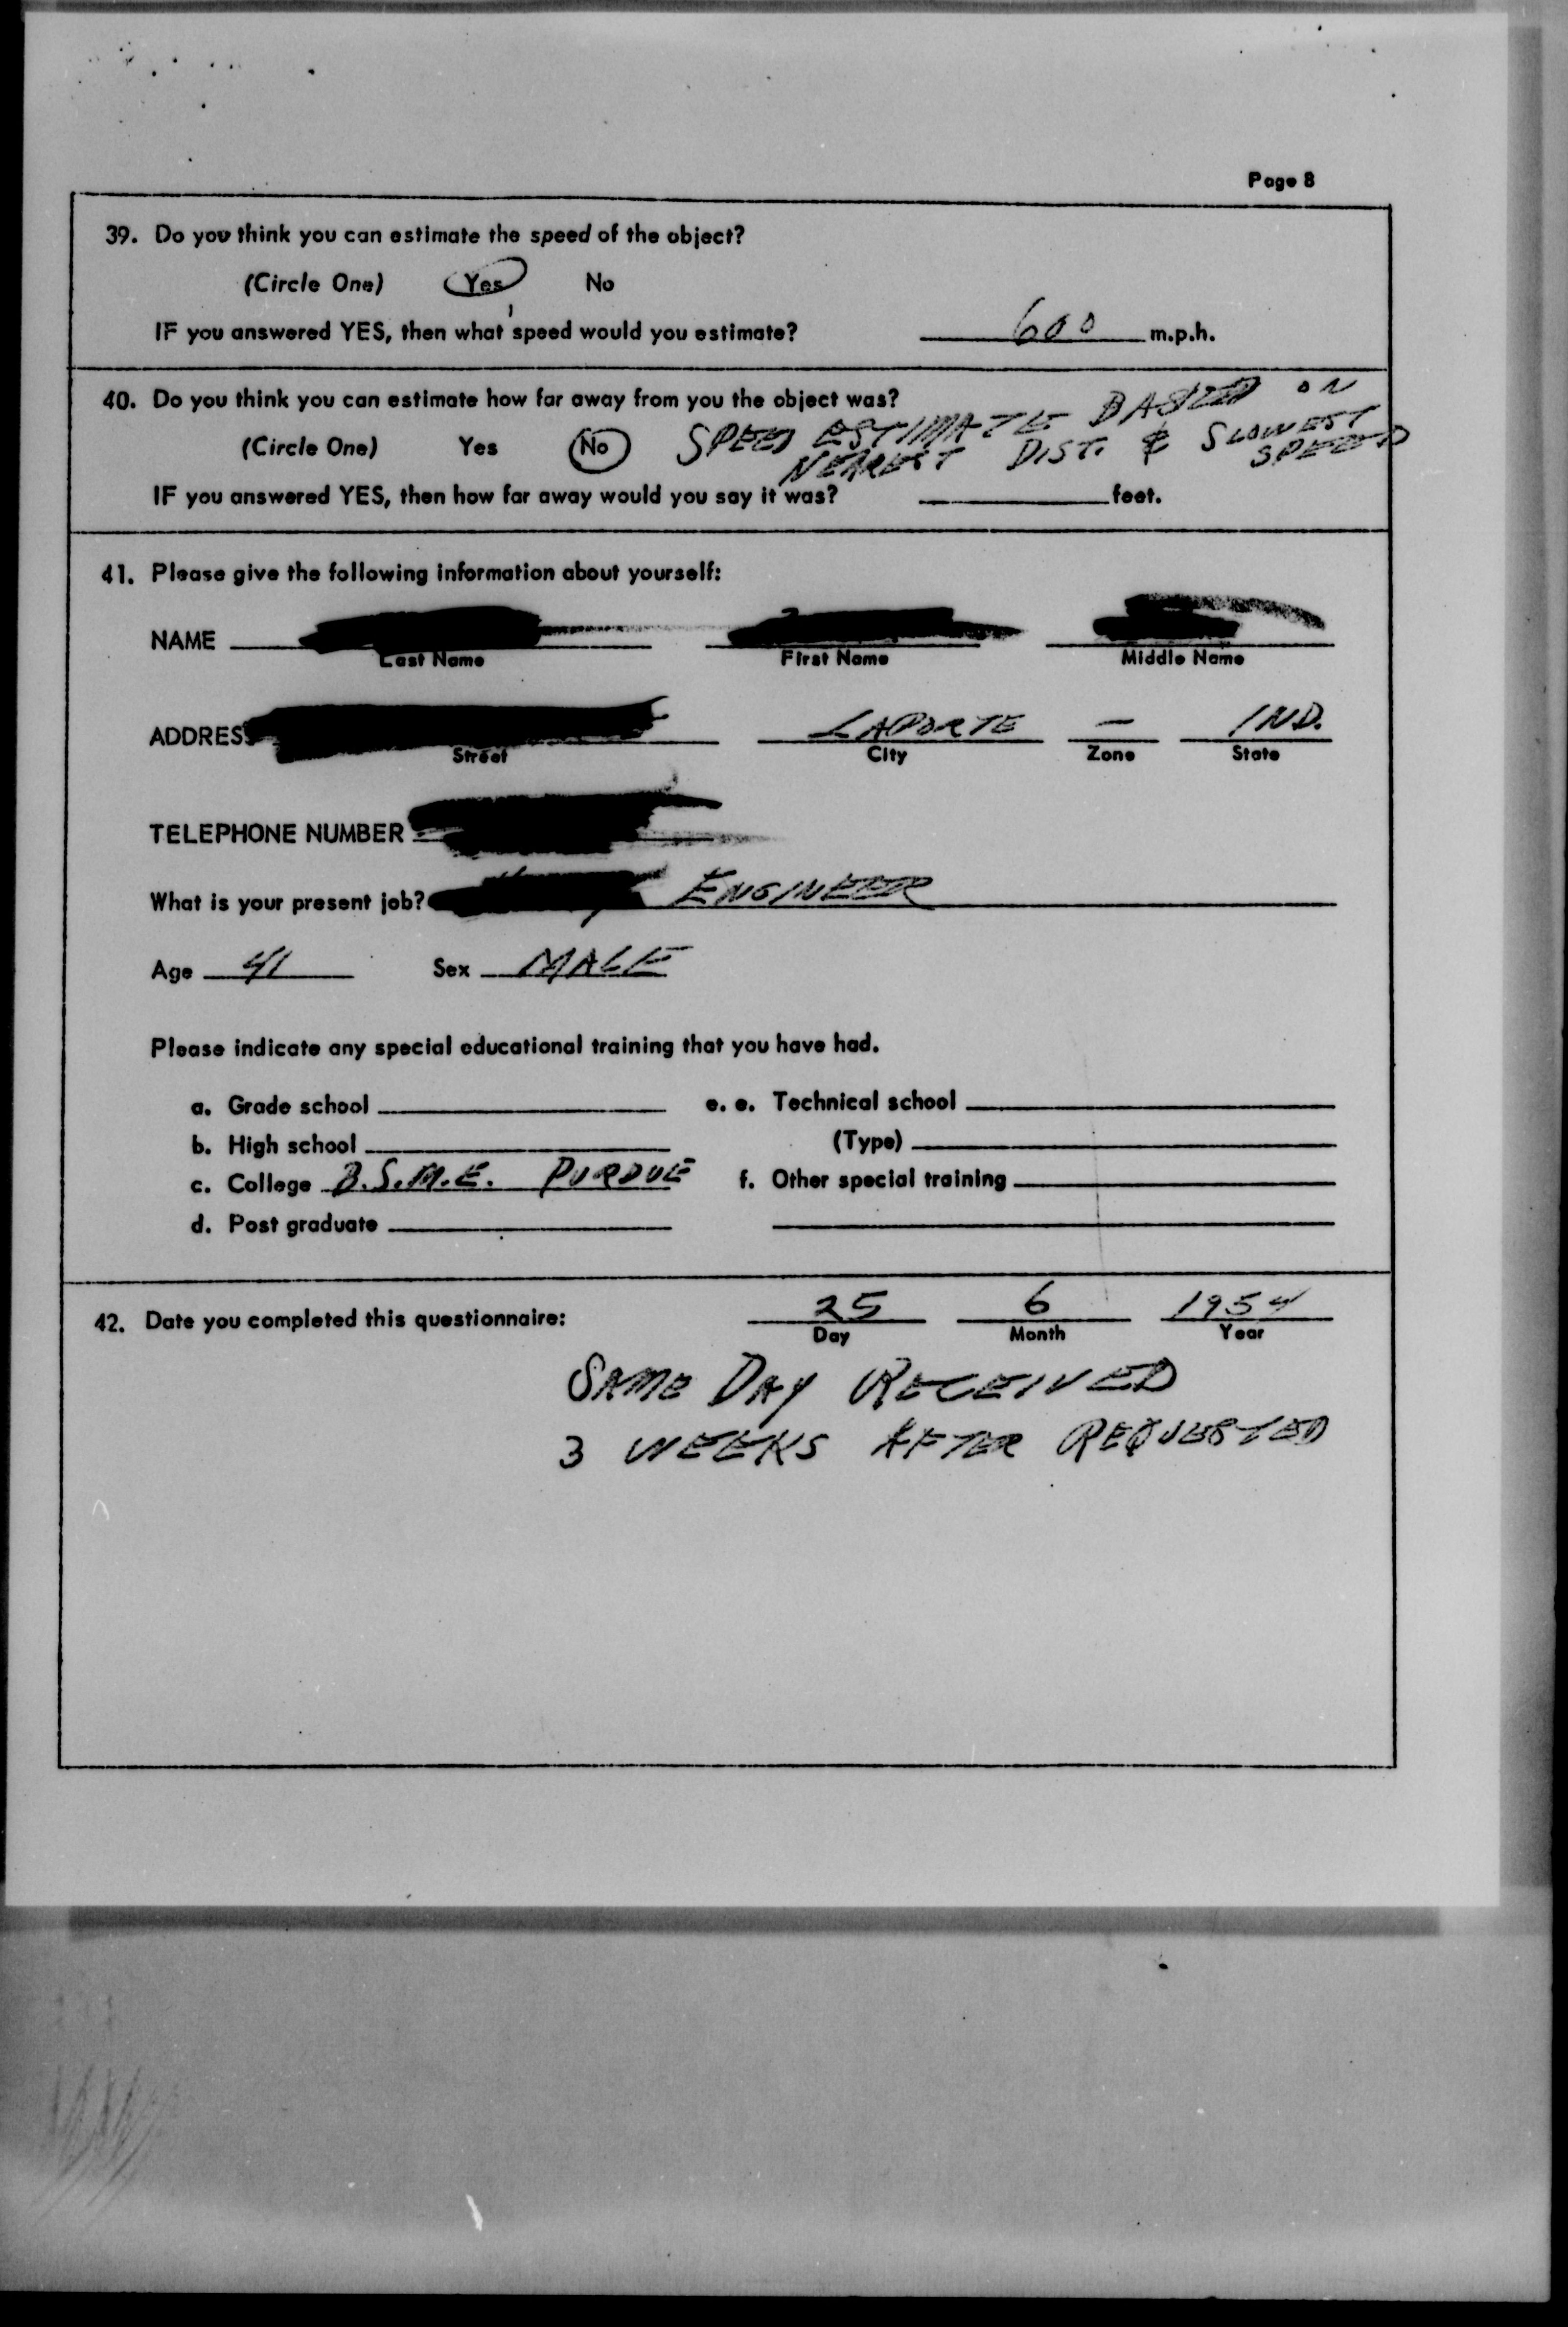 Page 8
39. Do you think you can estimate the speed of the object?
(Circle One) Yes No
IF you answered YES, then what speed would you estimate? 600 m.p.h.
40. Do you think you can estimate how far away from you the object was?
(Circle One) Yes No SPEED ESTIMATE BASED ON
NEAREST DIST. & SLOWEST SPEED
IF you answered YES, then how far away would you say it was? feet.
41. Please give the following information about yourself:
NAME
Last Name First Name Middle Name
ADDRESS LAPORTE — IND.
Street City Zone State
TELEPHONE NUMBER
What is your present job? ENGINEER
Age 41 Sex MALE
Please indicate any special educational training that you have had.
a. Grade school e. e. Technical school
b. High school (Type)
c. College B.S.M.E. PURDUE f. Other special training
d. Post graduate
42. Date you completed this questionnaire: 25 6 1954
Day Month Year
SAME DAY RECEIVED
3 WEEKS AFTER REQUESTED